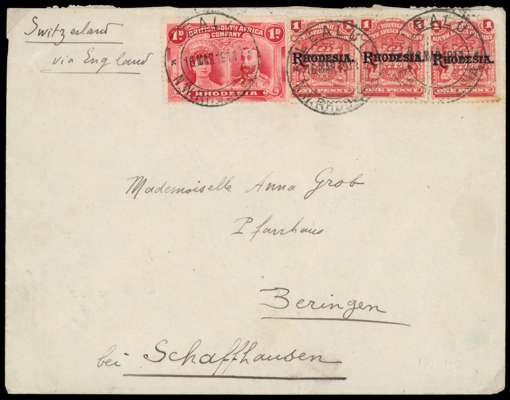 Switzerland
via England
1d BRITISH SOUTH AFRICA COMPANY 1d
RHODESIA
1 1 1
RHODESIA. RHODESIA. RHODESIA.
ONE PENNY ONE PENNY ONE PENNY
Mademoiselle Anna Grob
Pfarrhaus
Beringen
bei Schaffhausen